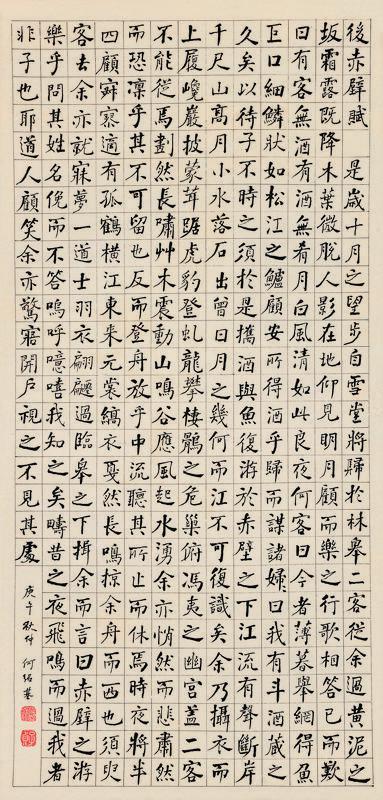 後赤壁賦 是歲十月之望步自雪堂將歸於林皋二客從余過黃泥之
坂霜露既降木葉微脫人影在地仰見明月顧而樂之行歌相答已而歎
曰有客無酒有酒無肴月白風清如此良夜何客曰今者薄暮舉網得魚
巨口細鱗狀如松江之鱸顧安所得酒乎歸而謀諸婦〻曰我有斗酒藏之
久矣以待子不時之須於是攜酒與魚復游於赤壁之下江流有聲斷岸
千尺山高月小水落石出曾日月之幾何而江不可復識矣余乃攝衣而
上履巉巖披蒙茸踞虎豹登虬龍攀棲鶻之危巢俯馮夷之幽宮蓋二客
不能從焉劃然長嘯艸木震動山鳴谷應風起水湧余亦悄然而悲肅然
而恐凜乎其不可留也反而登舟放乎中流聽其所止而休焉時夜將半
四顧寂寥適有孤鶴橫江東來元裳縞衣戛然長鳴掠余舟而西也須臾
客去余亦就寐夢一道士羽衣翩躚過臨皋之下揖余而言曰赤壁之游
樂乎問其姓名俛而不答嗚呼噫嘻我知之矣疇昔之夜飛鳴而過我者
非子也耶道人顧笑余亦驚寤開戶視之不見其處
庚午秋仲 何紹基